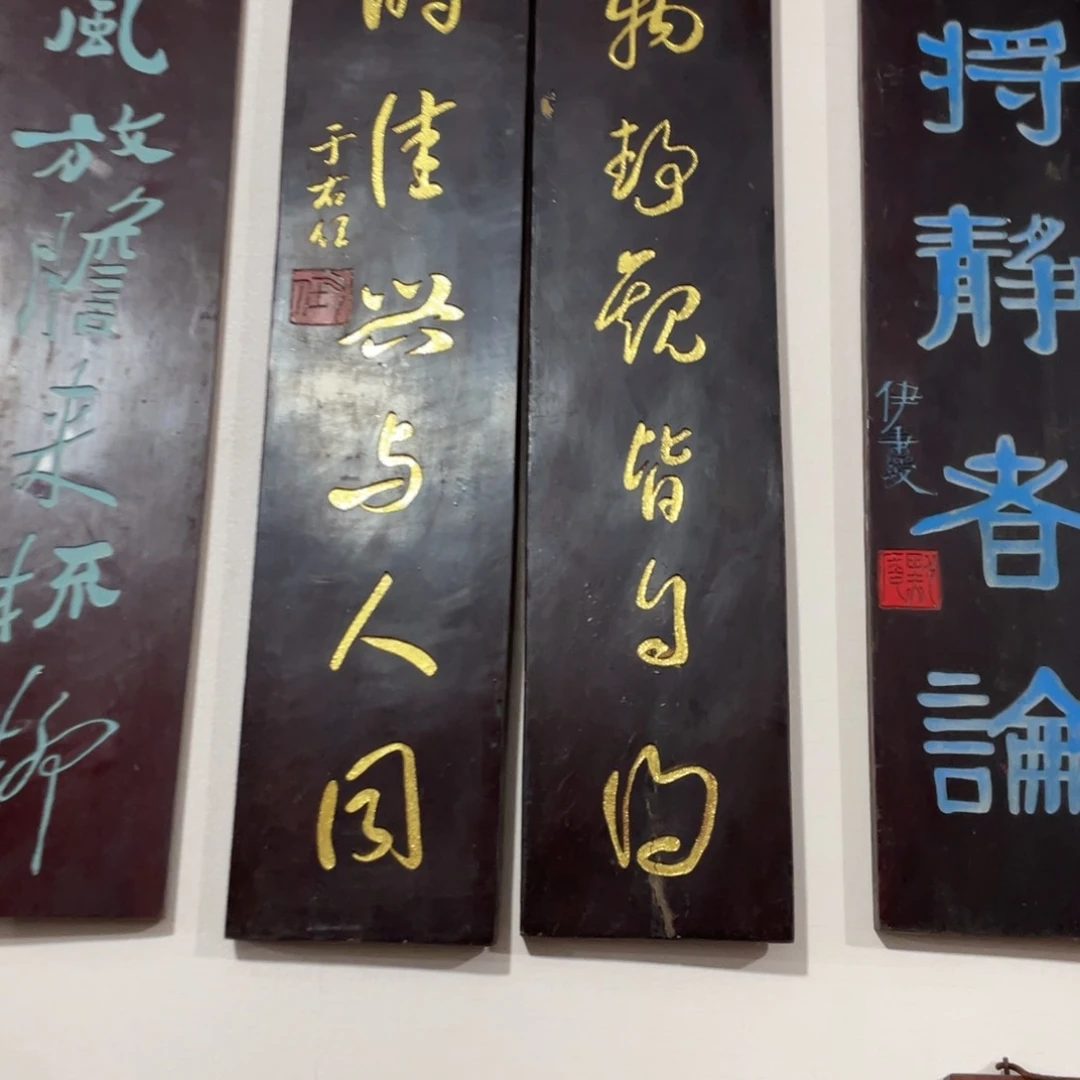 將靜者論
伊秉綬
物靜觀皆自得
時佳兴与人同
于右任
風放膽來梳柳